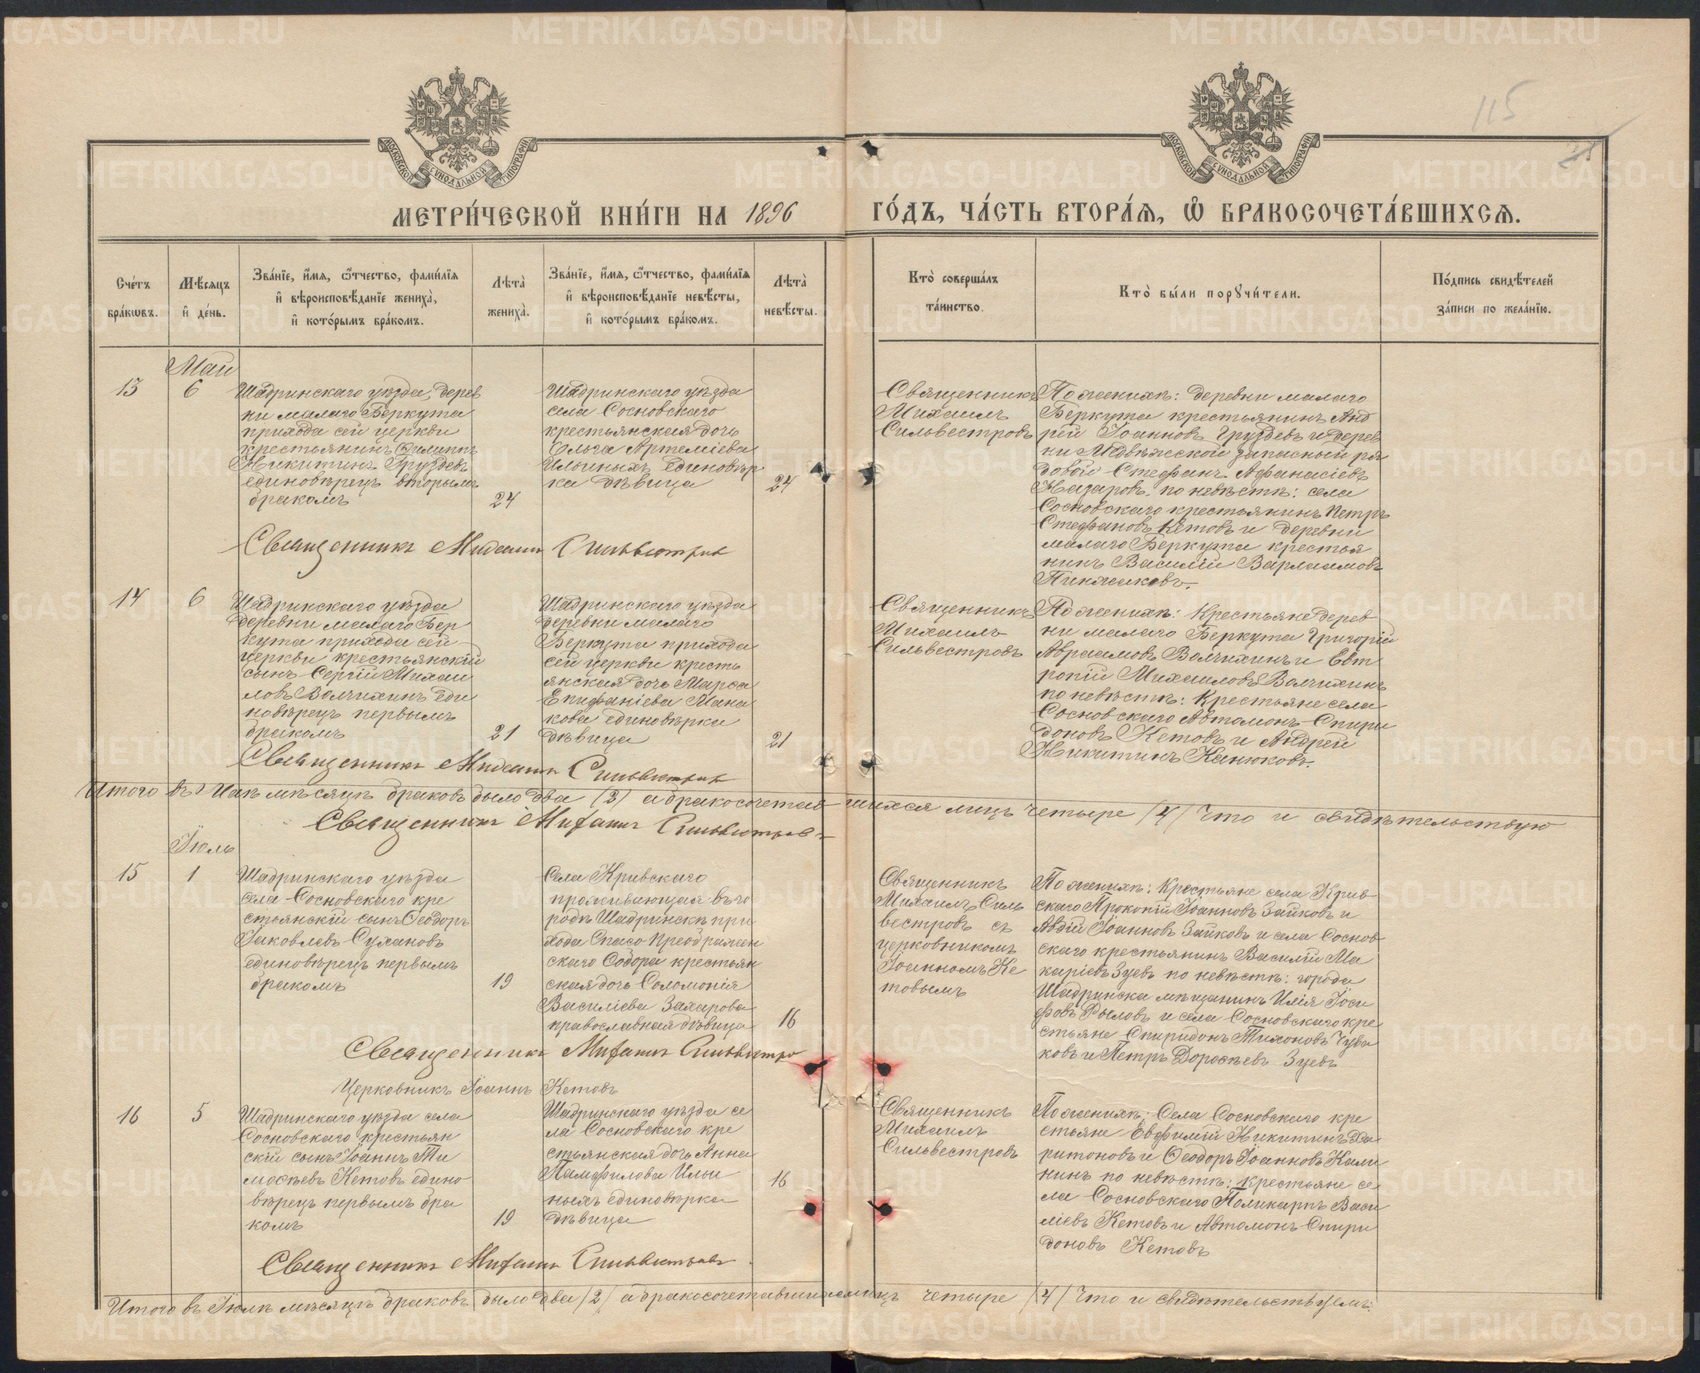 115
МОСКОВСКОЙ СѴНОДАЛЬНОЙ ТИПОГРАФІИ
МОСКОВСКОЙ СѴНОДАЛЬНОЙ ТИПОГРАФІИ
МЕТРИ́ЧЕСКОЙ КНИ́ГИ НА 1896
ГО́ДЪ, ЧА́СТЬ ВТОРА́Я, Ѡ҆ БРАКОСОЧЕТА́ВШИХСЯ.
Сче́тъ бра́ковъ.
Мѣ́сяцъ и҆ де́нь.
Зва́нїе, и҆́мя, ѻ҆́тчество, фами́лїя
и҆ вѣроисповѣ́данїе жениха̀,
и҆ кото́рымъ бра́комъ.
Лѣта̀ жениха̀.
Зва́нїе, и҆́мя, ѻ҆́тчество, фами́лїя
и҆ вѣроисповѣ́данїе невѣ́сты,
и҆ кото́рымъ бра́комъ.
Лѣта̀ невѣ́сты.
Кто̀ соверша́лъ
та́инство.
Кто̀ бы́ли порꙋчи́тели.
По́дпись свидѣ́телей
за́писи по жела́нїю.
Май
13
6
Шадринскаго уѣзда, дерев
ни малаго Беркута
прихода сей церкви
крестьянинъ Филиппъ
Никитинъ Груздевъ
единовѣрецъ вторымъ
бракомъ
24
Шадринскаго уѣзда
села Сосновскаго
крестьянская дочь
Ольга Артеміева
Ильиныхъ единовѣр
ка дѣвица
24
Священникъ
Михаилъ
Сильвестровъ
По женихѣ: деревни малаго
Беркута крестьянинъ Анд
рей Іоанновъ Груздевъ и дерев
ни Медвѣжской запасный ря
довой Стефанъ Афанасіевъ
Назаровъ. по невѣстѣ: села
Сосновскаго крестьянинъ Петръ
Стефановъ Кетовъ и деревни
малаго Беркута крестья
нинъ Василій Варлаамовъ
Священникъ Михаилъ Сильвестровъ
14
6
Шадринскаго уѣзда
деревни малаго Бер
кута прихода сей
церкви крестьянскій
сынъ Сергій Михаи
ловъ Волчихинъ еди
новѣрецъ первымъ
бракомъ
21
Шадринскаго уѣзда
деревни малаго
Беркута прихода
сей церкви кресть
янская дочь Марѳа
Епифаніева Мана
кова единовѣрка
дѣвица
21
Священникъ
Михаилъ
Сильвестровъ
По женихѣ: Крестьяне дерев
ни малаго Беркута Григорій
Авраамовъ Волчихинъ и Евт
ропій Михаиловъ Волчихинъ
по невѣстѣ: Крестьяне села
Сосновскаго Автомонъ Спири
доновъ Кетовъ и Андрей
Никитинъ Канюковъ.
Священникъ Михаилъ Сильвестровъ
Итого въ Маѣ мѣсяцѣ браковъ было два /2/ а бракосочетавшихся лицъ четыре /4/ Что и свидѣтельствую
Священникъ Михаилъ Сильвестровъ
Іюль
15
1
Шадринскаго уѣзда
села Сосновскаго кре
стьянскій сынъ Ѳеодоръ
Іаковлевъ Сумановъ
единовѣрецъ первымъ
бракомъ
19
Села Кривскаго
проживающая въ го
родѣ Шадринскѣ при
хода Спасо-Преображен
скаго Собора крестьян
ская дочь Соломонія
Василіева Захарова
православная дѣвица
16
Священникъ
Михаилъ Силь
вестровъ съ
церковникомъ
Іоанномъ Ке
товымъ
По женихѣ: Крестьяне села Крив
скаго Прокопій Іоанновъ Зайковъ и
Авдій Іоанновъ Зайковъ и села Соснов
скаго крестьянинъ Василій Ма
каріевъ Зуевъ по невѣстѣ: города
Шадринска мѣщанинъ Илія Іоси
фовъ Рыловъ и села Сосновскаго кре
стьяне Спиридонъ Тихоновъ Чува
ковъ и Петръ Дороѳеевъ Зуевъ
Священникъ Михаилъ Сильвестро
Церковникъ Іоаннъ Кетовъ
16
5
Шадринскаго уѣзда села
Сосновскаго крестьян
скій сынъ Іоаннъ Ти
моѳеевъ Кетовъ едино
вѣрецъ первымъ бра
комъ
19
Шадринскаго уѣзда се
ла Сосновскаго кре
стьянская дочь Анна
Памфилова Ильи
ныхъ единовѣрка
дѣвица
16
Священникъ
Михаилъ
Сильвестровъ
По женихѣ: Села Сосновскаго кре
стьяне Евфимій Никитинъ Ха
ритоновъ и Ѳеодоръ Іоанновъ Кали
нинъ по невѣстѣ: крестьяне се
ла Сосновскаго Поликарпъ Васи
ліевъ Кетовъ и Автомонъ Спири
доновъ Кетовъ
Священникъ Михаилъ Сильвестровъ
Итого въ Іюлѣ мѣсяцѣ браковъ было два /2/ а бракосочетавшихся лицъ четыре /4/ Что и свидѣтельствуемъ: